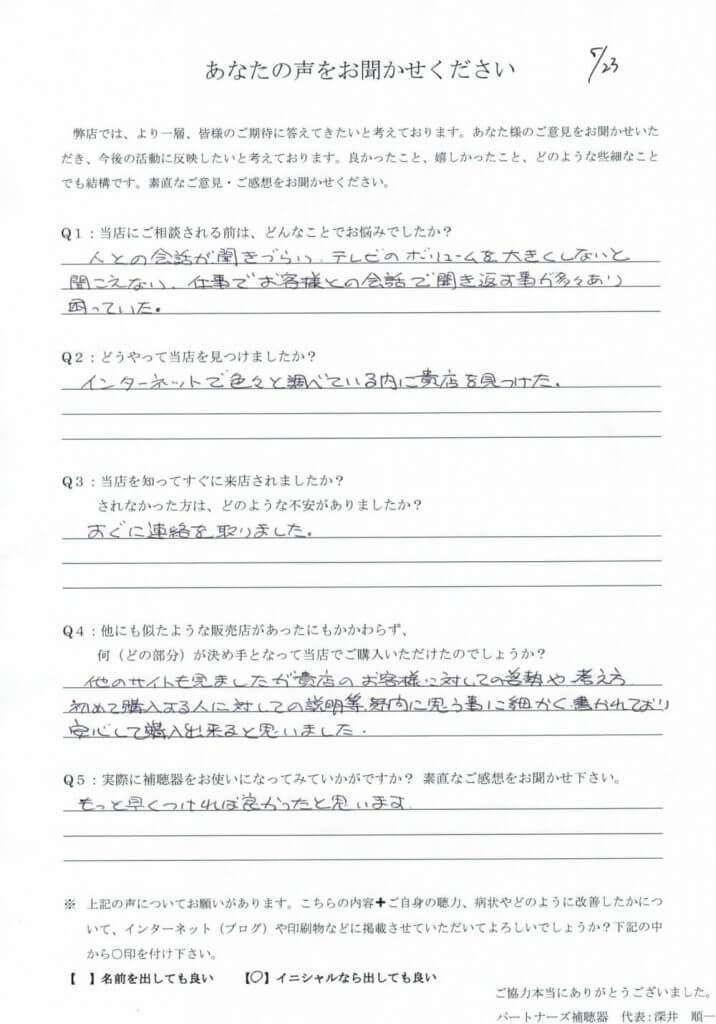 あなたの声をお聞かせください
5/23
弊店では、より一層、皆様のご期待に答えてきたいと考えております。あなた様のご意見をお聞かせいた
だき、今後の活動に反映したいと考えております。良かったこと、嬉しかったこと、どのような些細なこと
でも結構です。素直なご意見・ご感想をお聞かせください。
Q1:当店にご相談される前は、どんなことでお悩みでしたか?
人との会話が聞きづらい、テレビのボリュームを大きくしないと
聞こえない、仕事でお客様との会話で聞き返す事が多々あり
困っていた。
Q2:どうやって当店を見つけましたか?
インターネットで色々と調べている内に貴店を見つけた。
Q3:当店を知ってすぐに来店されましたか?
されなかった方は、どのような不安がありましたか?
すぐに連絡を取りました。
Q4:他にも似たような販売店があったにもかかわらず、
何(どの部分)が決め手となって当店でご購入いただけたのでしょうか?
他のサイトも見ましたが貴店のお客様に対しての姿勢や考え方
初めて購入する人に対しての説明等疑問に思う事に細かく書かれており
安心して購入出来ると思いました.
Q5:実際に補聴器をお使いになってみていかがですか? 素直なご感想をお聞かせ下さい。
もっと早くつければ良かったと思います
※ 上記の声についてお願いがあります。こちらの内容+ご自身の聴力、病状やどのように改善したかにつ
いて、インターネット(ブログ)や印刷物などに掲載させていただいてよろしいでしょうか?下記の中
から○印を付け下さい。
【 】名前を出しても良い 【○】イニシャルなら出しても良い
ご協力本当にありがとうございました。
パートナーズ補聴器 代表:深井 順一